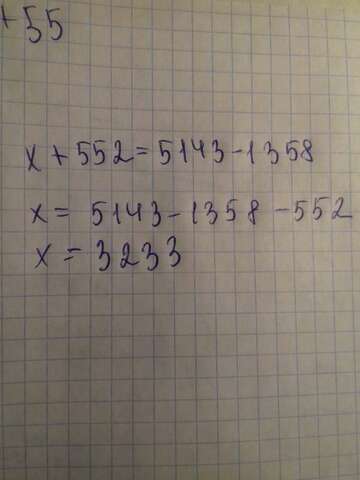 +55
x + 552 = 5143 - 1358
x = 5143 - 1358 - 552
x = 3233